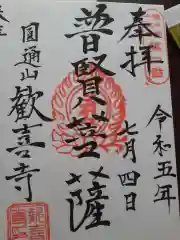 奉拝
令和五年
七月四日
普賢菩薩
圓通山
歓喜寺